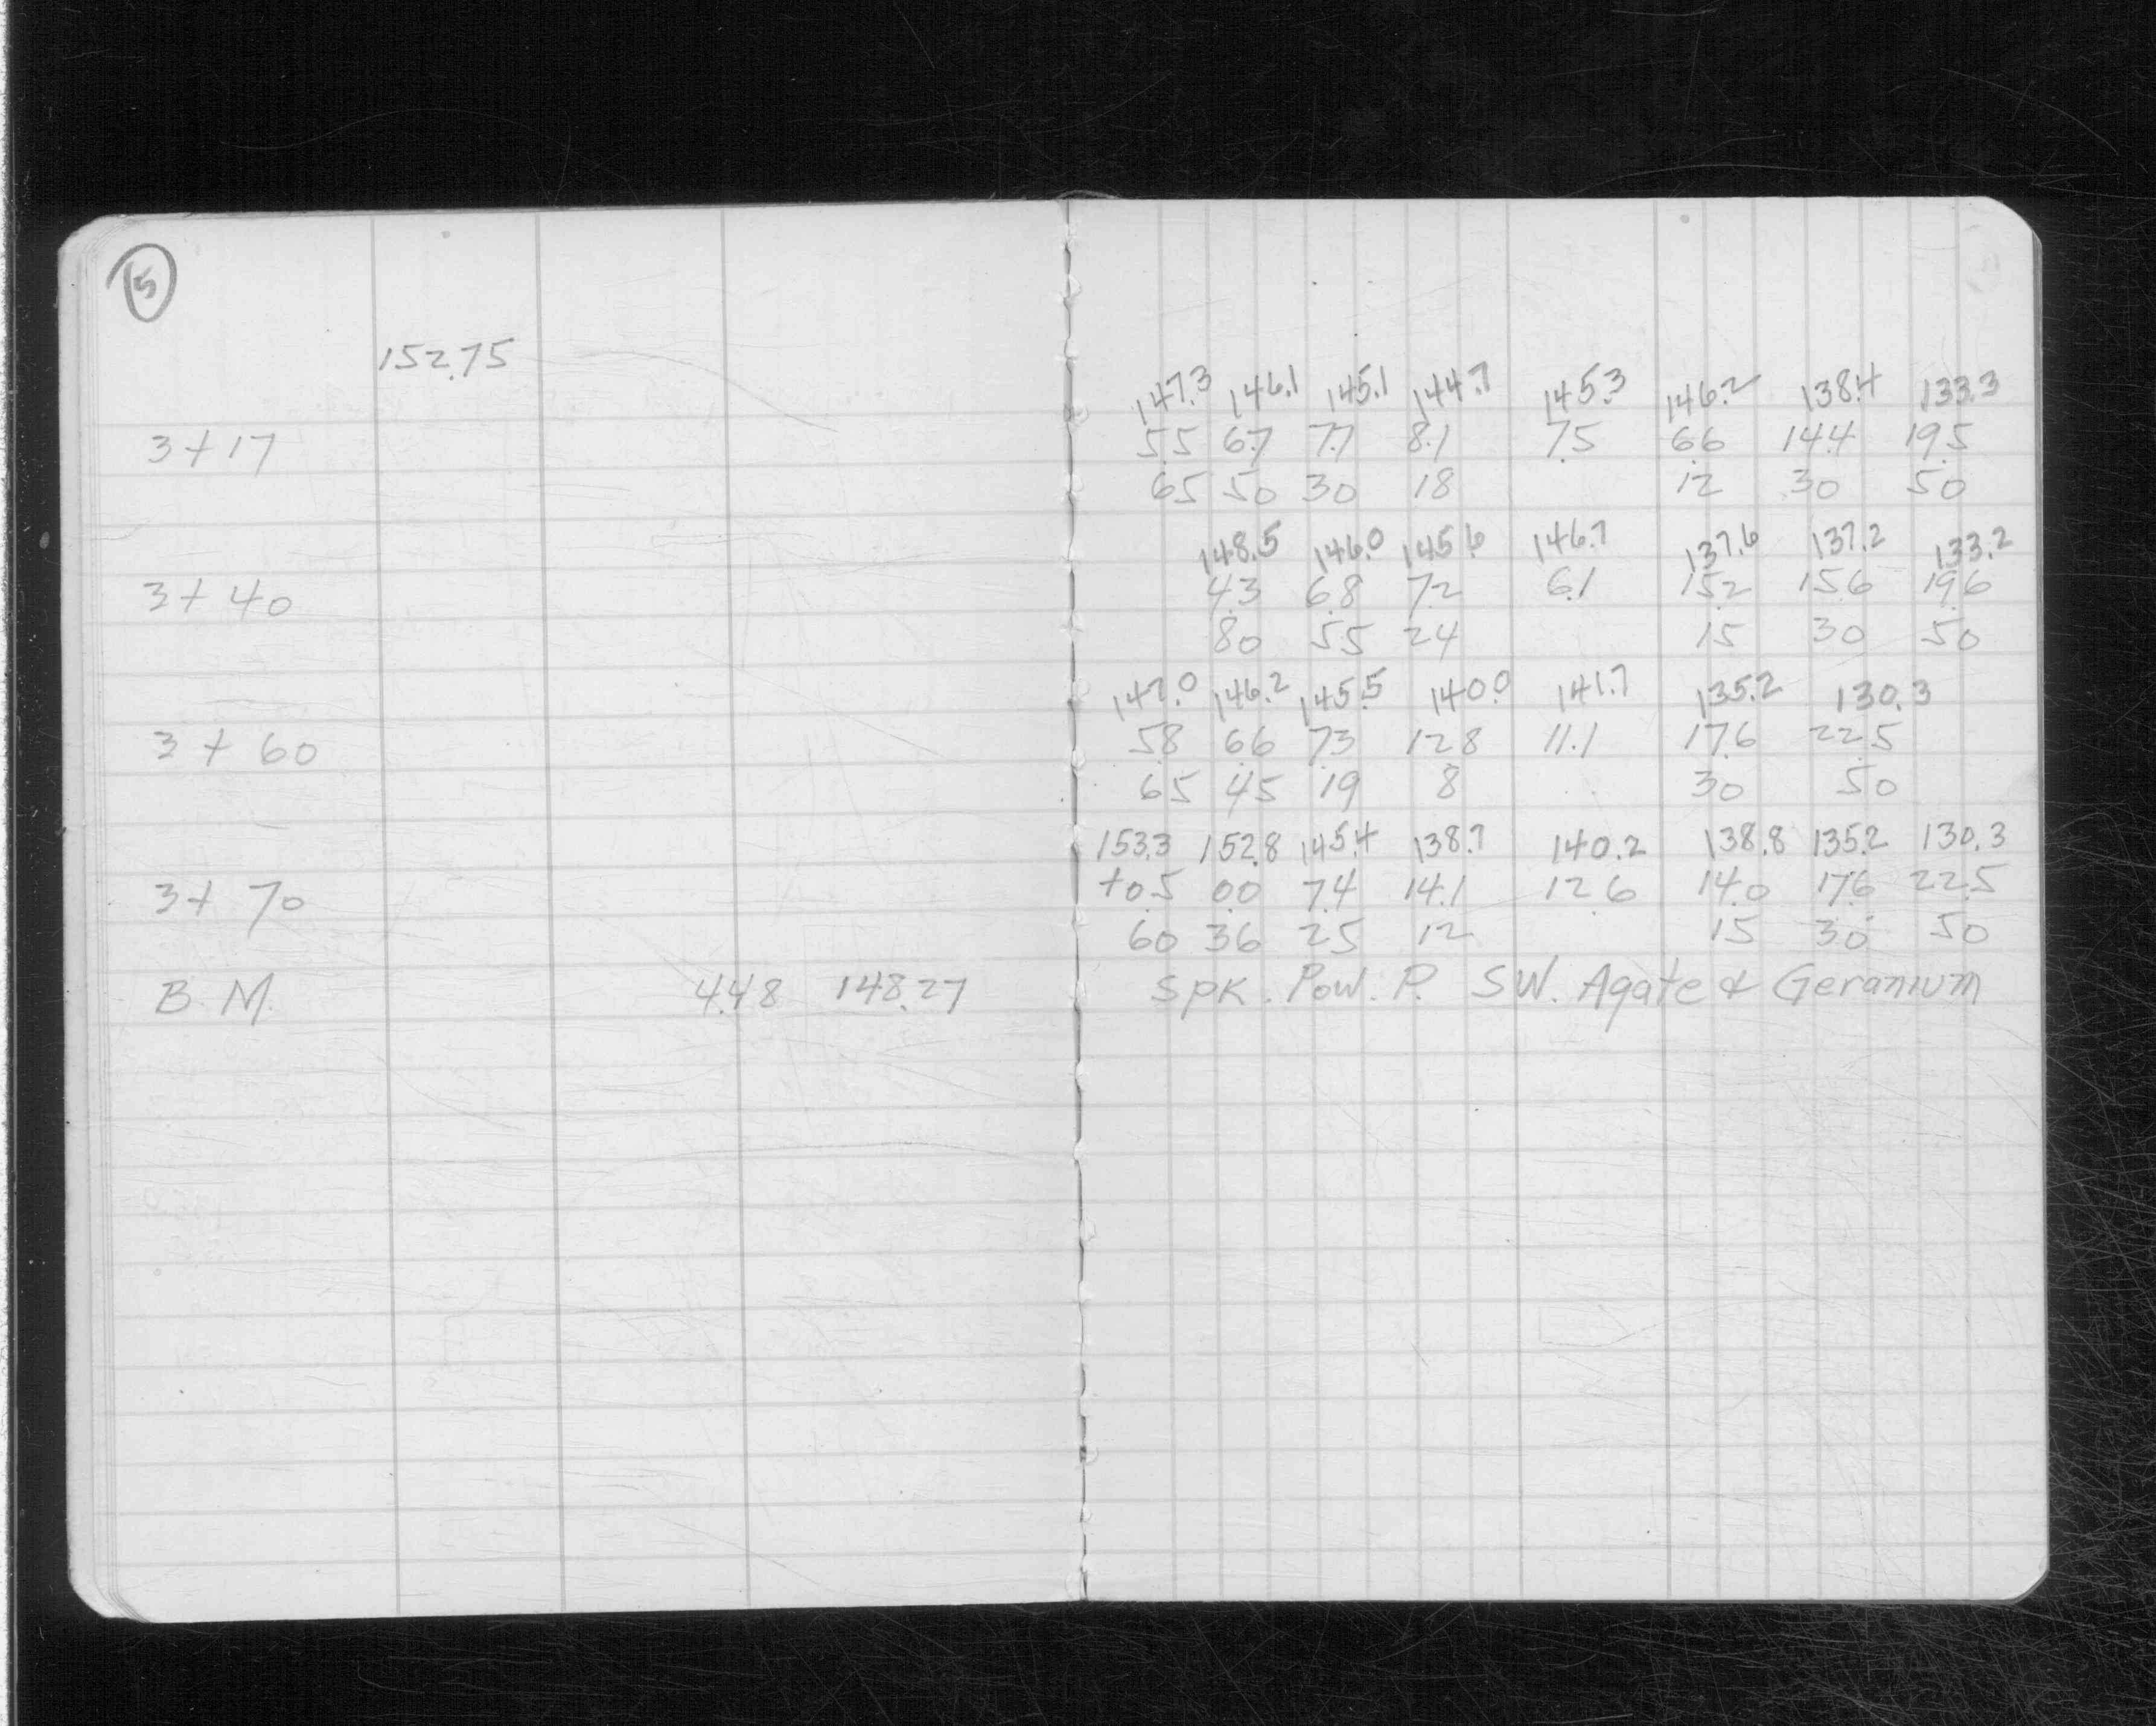 15
152.75
147.3 146.1 145.1 144.7 145.3 146.2 138.4 133.3
3+17 5.5 6.7 7.7 8.1 7.5 6.6 14.4 19.5
65 50 30 18 12 30 50
148.5 146.0 145.6 146.7 137.6 137.2 133.2
3+40 4.3 6.8 7.2 6.1 15.2 15.6 19.6
80 55 24 15 30 50
147.0 146.2 145.5 140.0 141.7 135.2 130.3
3+60 5.8 6.6 7.3 12.8 11.1 17.6 22.5
65 45 19 8 30 50
153.3 152.8 145.4 138.7 140.2 138.8 135.2 130.3
3+70 +0.5 0.0 7.4 14.1 12.6 14.0 17.6 22.5
60 36 25 12 15 30 50
B.M. 4.48 148.27 Spk. Pow. P. SW. Agate & Geranium